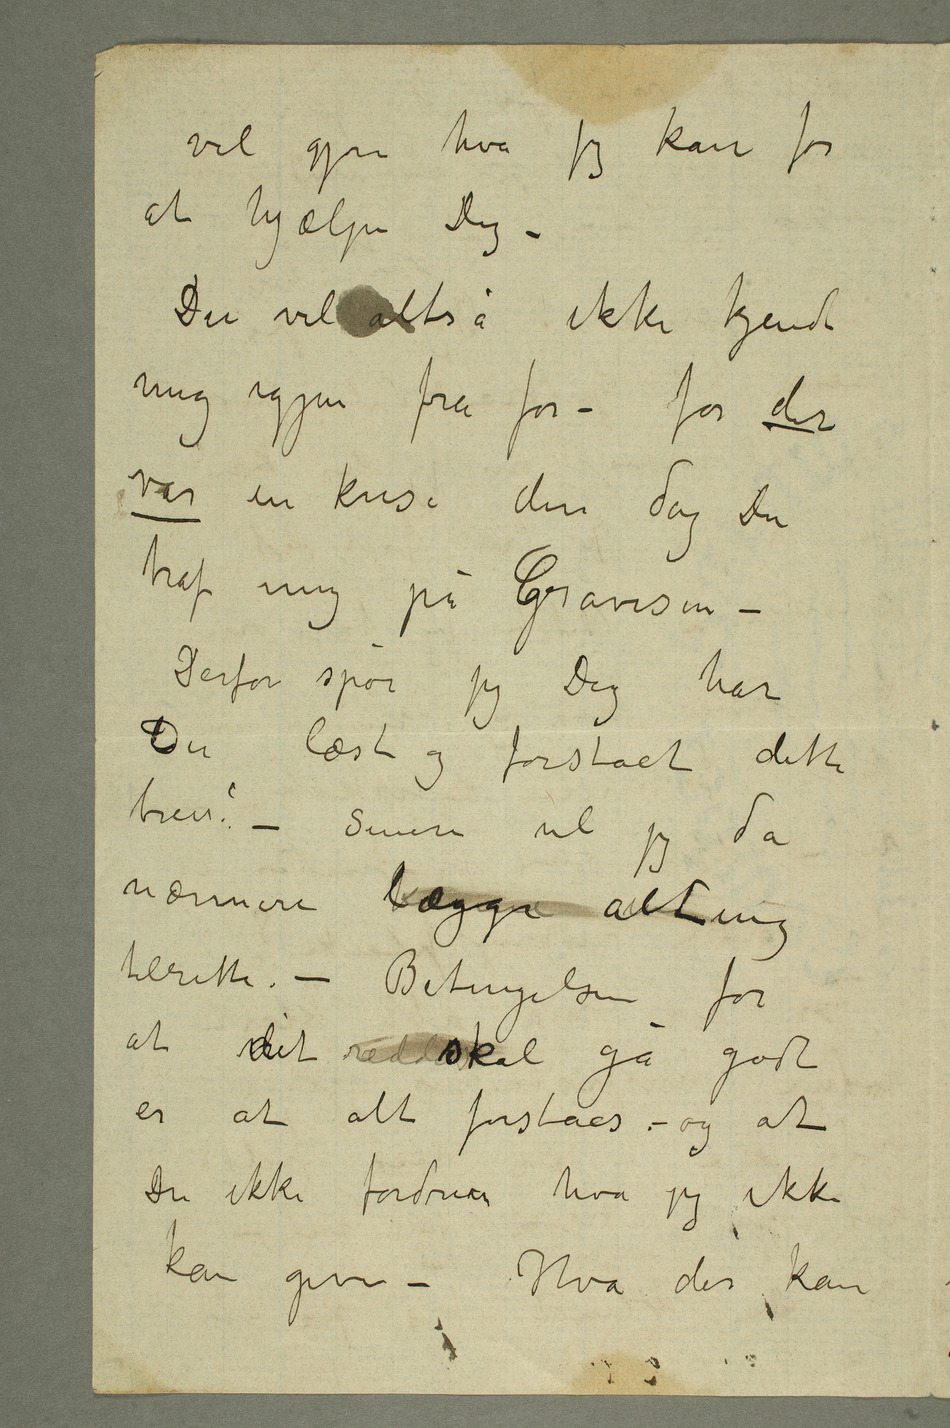 vil gjøre hva jeg kan for
at hjælpe Dig –
Du vil altså ikke kjendt
mig igjen fra før – for der
var en krise den dag Du
traf mig på Gravesen –
Derfor spør jeg Dig har
Du læst og forstaet dette
brev? – Senere vil jeg da
nærmere lægge alting
tilrette. – Betingelsen for
at det skal gå godt
er at alt forstaes. – og at
Du ikke fordrer hva jeg ikke
kan give – Hva der kan